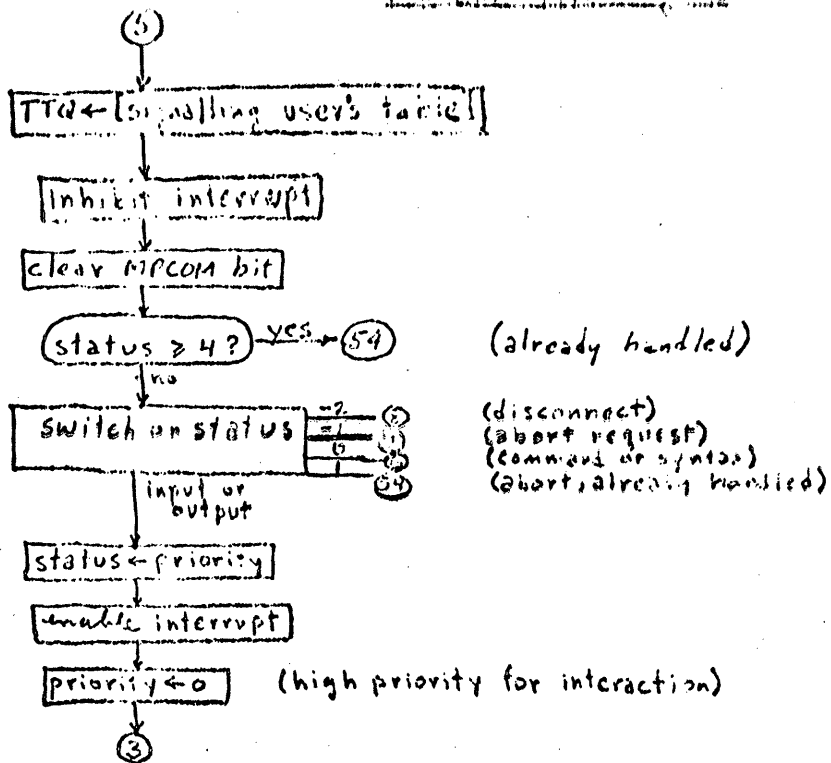 5
TTQ← [signalling user's table]
inhibit interrupt
clear MPCOM bit
status ≥ 4? yes 54 (already handled)
no
switch on status
-2 (disconnect)
-1 (abort request)
0 (command or syntax)
1 54 (abort, already handled)
input or
output
status←priority
enable interrupt
priority←0 (high priority for interaction)
3